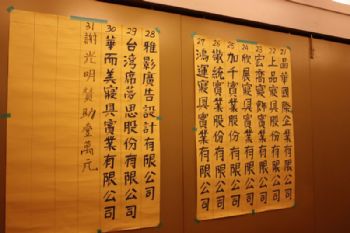 21 晶華國際企業有限公司
22 上品寢具實業有限公司
23 宏喬寢飾實業有限公司
24 欣展寢具實業有限公司
25 加千實業股份有限公司
26 傲統實業股份有限公司
27 鴻運寢具實業有限公司
28 雅影廣告設計有限公司
29 台湾席蒂思股份有限公司
30 華而美寢具實業有限公司
31 謝光明贊助壹萬元